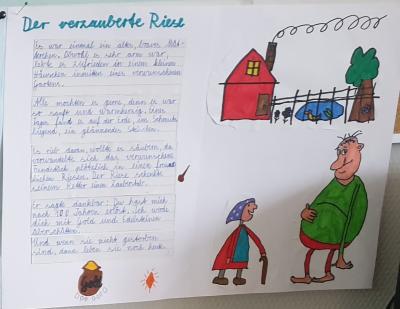 Der verzauberte Riese
Es war einmal ein altes, braves
Obwohl es sehr arm war,
lebte es zufrieden in einem kleinen
Häuschen inmitten eines verwunschenen
Gartens.
Alle mochten es gerne, denn es war
so sanft und warmherzig. Eines
Tages fand es auf der Erde, im Schmutz
liegend, ein glänzendes Steinchen.
Es rieb daran, wollte es säubern, da
verwandelte sich das
plötzlich in einen
lichen Riesen. Der Riese schenkte
seinem Retter einen Zaubertopf.
Er sagte dankbar: Du hast mich
nach 100 Jahren erlöst. Ich werde
dich mit Gold und Edelsteinen
überschütten.
Und wenn sie nicht gestorben
sind, dann leben sie noch heute.